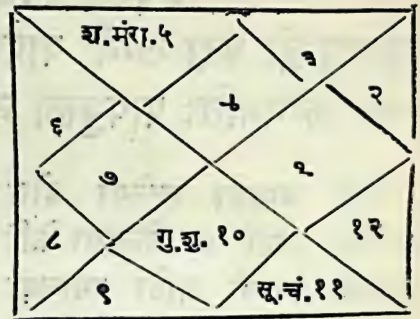 श.मंरा.५
३
४
२
६
७
२
८
गु.शु. १०
१२
९
सू.चं.११